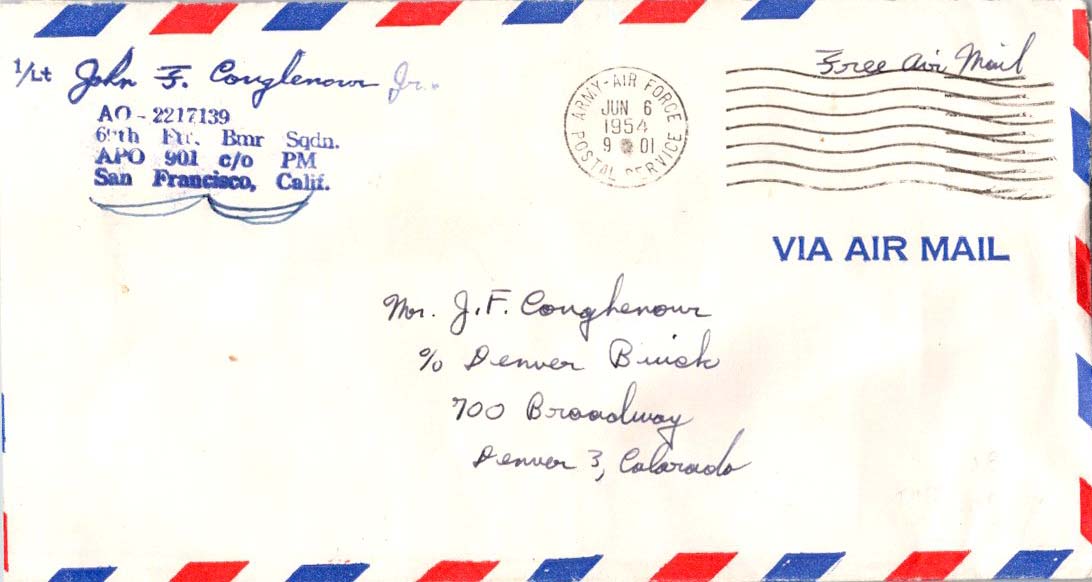 1/Lt John F. Conghenour Jr.
AO - 2217139
69th Ftr. Bmr Sqdn.
APO 901 c/o PM
San Francisco, Calif.
ARMY-AIR FORCE
JUN 6
1954
9 01
POSTAL SERVICE
Free Air Mail
VIA AIR MAIL
Mr. J. F. Conghenour
c/o Denver Buick
700 Broadway
Denver 3, Colorado